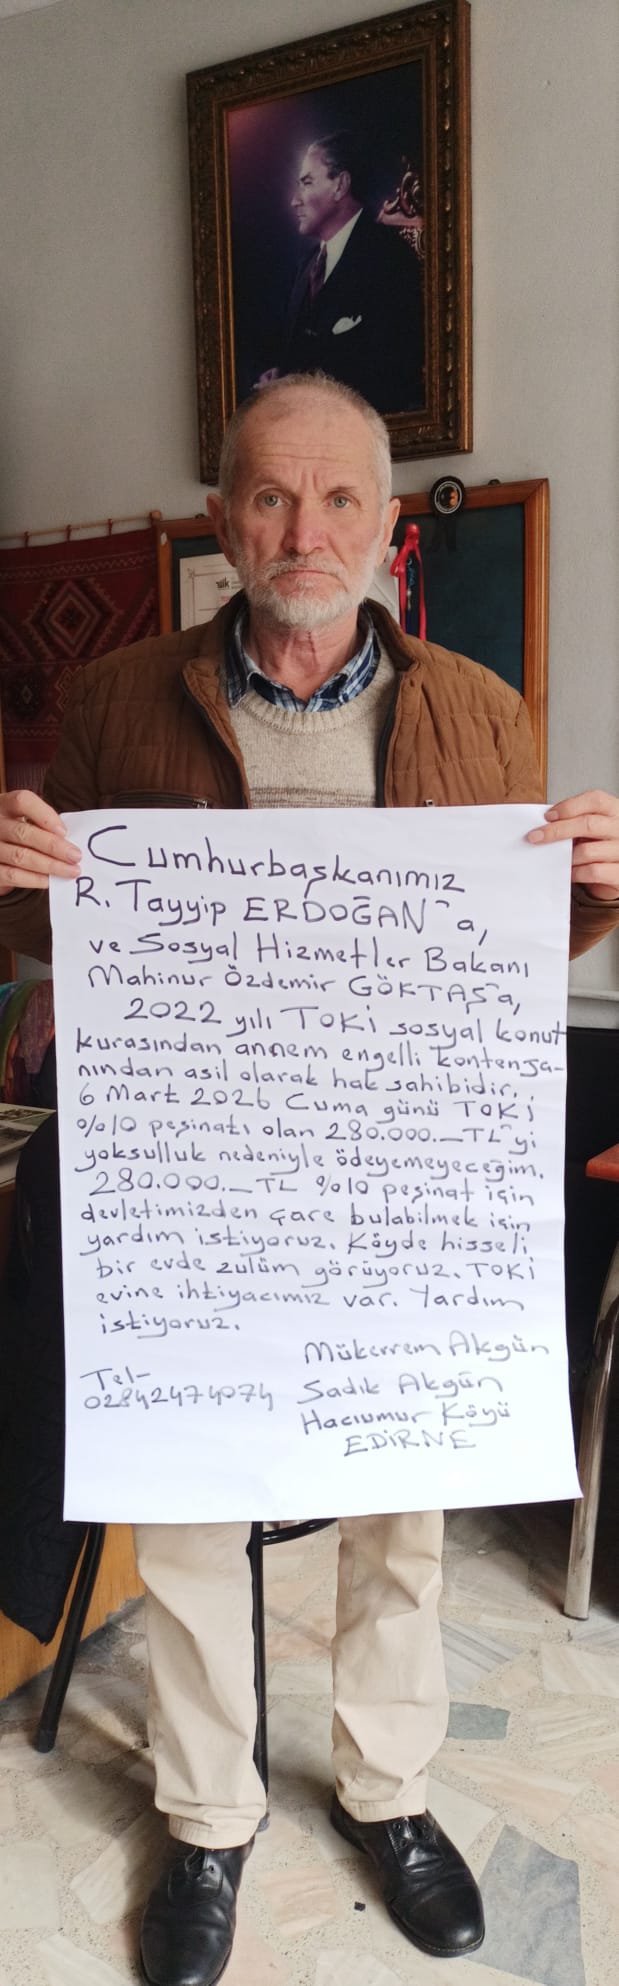 Cumhurbaşkanımız
R. Tayyip ERDOĞAN'a,
ve Sosyal Hizmetler Bakanı
Mahinur Özdemir GÖKTAŞ'a,
2022 yılı TOKİ sosyal konut
kurasından annem engelli kontenja-
nından asil olarak hak sahibidir.
6 Mart 2026 Cuma günü TOKİ
%10 peşinatı olan 280.000.-TL'yi
yoksulluk nedeniyle ödeyemeyeceğim.
280.000.-TL %10 peşinat için
devletimizden çare bulabilmek için
yardım istiyoruz. Köyde hisseli
bir evde zulüm görüyoruz. TOKİ
evine ihtiyacımız var. Yardım
istiyoruz.
Mükerrem Akgün
Sadık Akgün
Hacıumur Köyü
EDİRNE
Tel-
02842474074